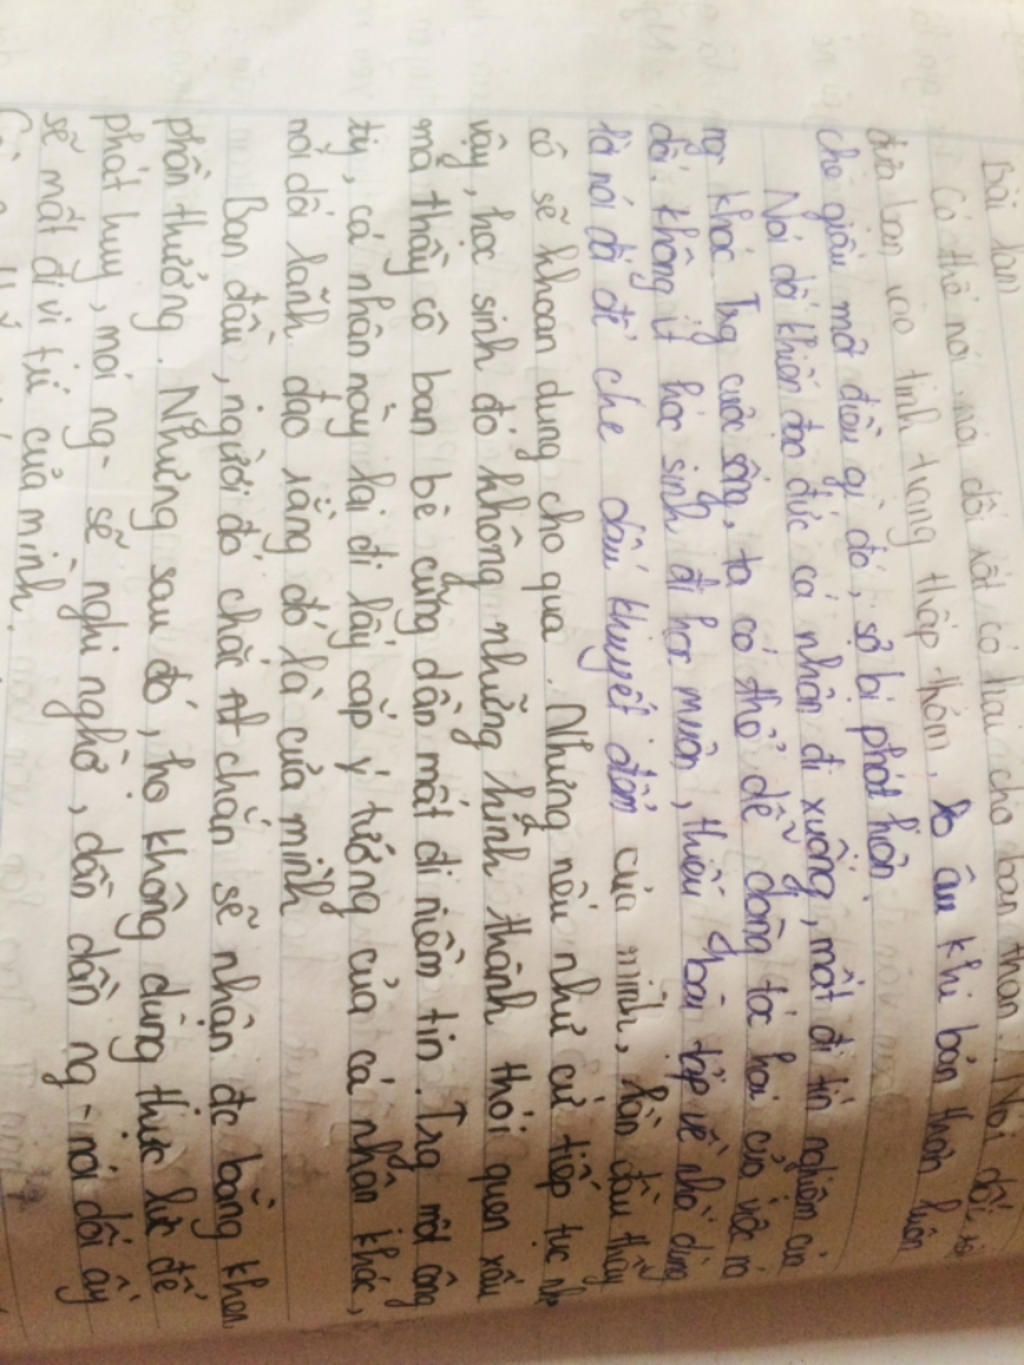 Bài làm
Có thể nói, nói dối rất có hại cho bản thân. Nói dối, sẽ
đưa bạn vào tình trạng thấp thỏm, lo âu khi bản thân luôn
che giấu một điều gì đó, sợ bị phát hiện.
Nói dối khiến đạo đức cá nhân đi xuống, mất đi tín nghiệm của
ng khác. Trg cuộc sống, ta có thể dễ dàng tác hại của việc nói
dối. Không ít học sinh đi học muộn, thiếu bài tập về nhà dùng
lời nói dối để che dấu khuyết điểm của mình, lần đầu thầy
cô sẽ khoan dung cho qua. Nhưng nếu như cứ tiếp tục như
vậy, học sinh đó không những hình thành thói quen xấu
mà thầy cô bạn bè cũng dần mất đi niềm tin. Trg một công
ty, cá nhân này lại đi lấy cắp ý tưởng của cá nhân khác,
nói dối lãnh đạo rằng đó là của mình
Ban đầu, người đó chắc chắn sẽ nhận đc bằng khen
phần thưởng. Nhưng sau đó, họ không dùng thực lực để
phát huy, mọi ng- sẽ nghi nghờ, dần dần ng- nói dối ấy
sẽ mất đi vị trí của mình.